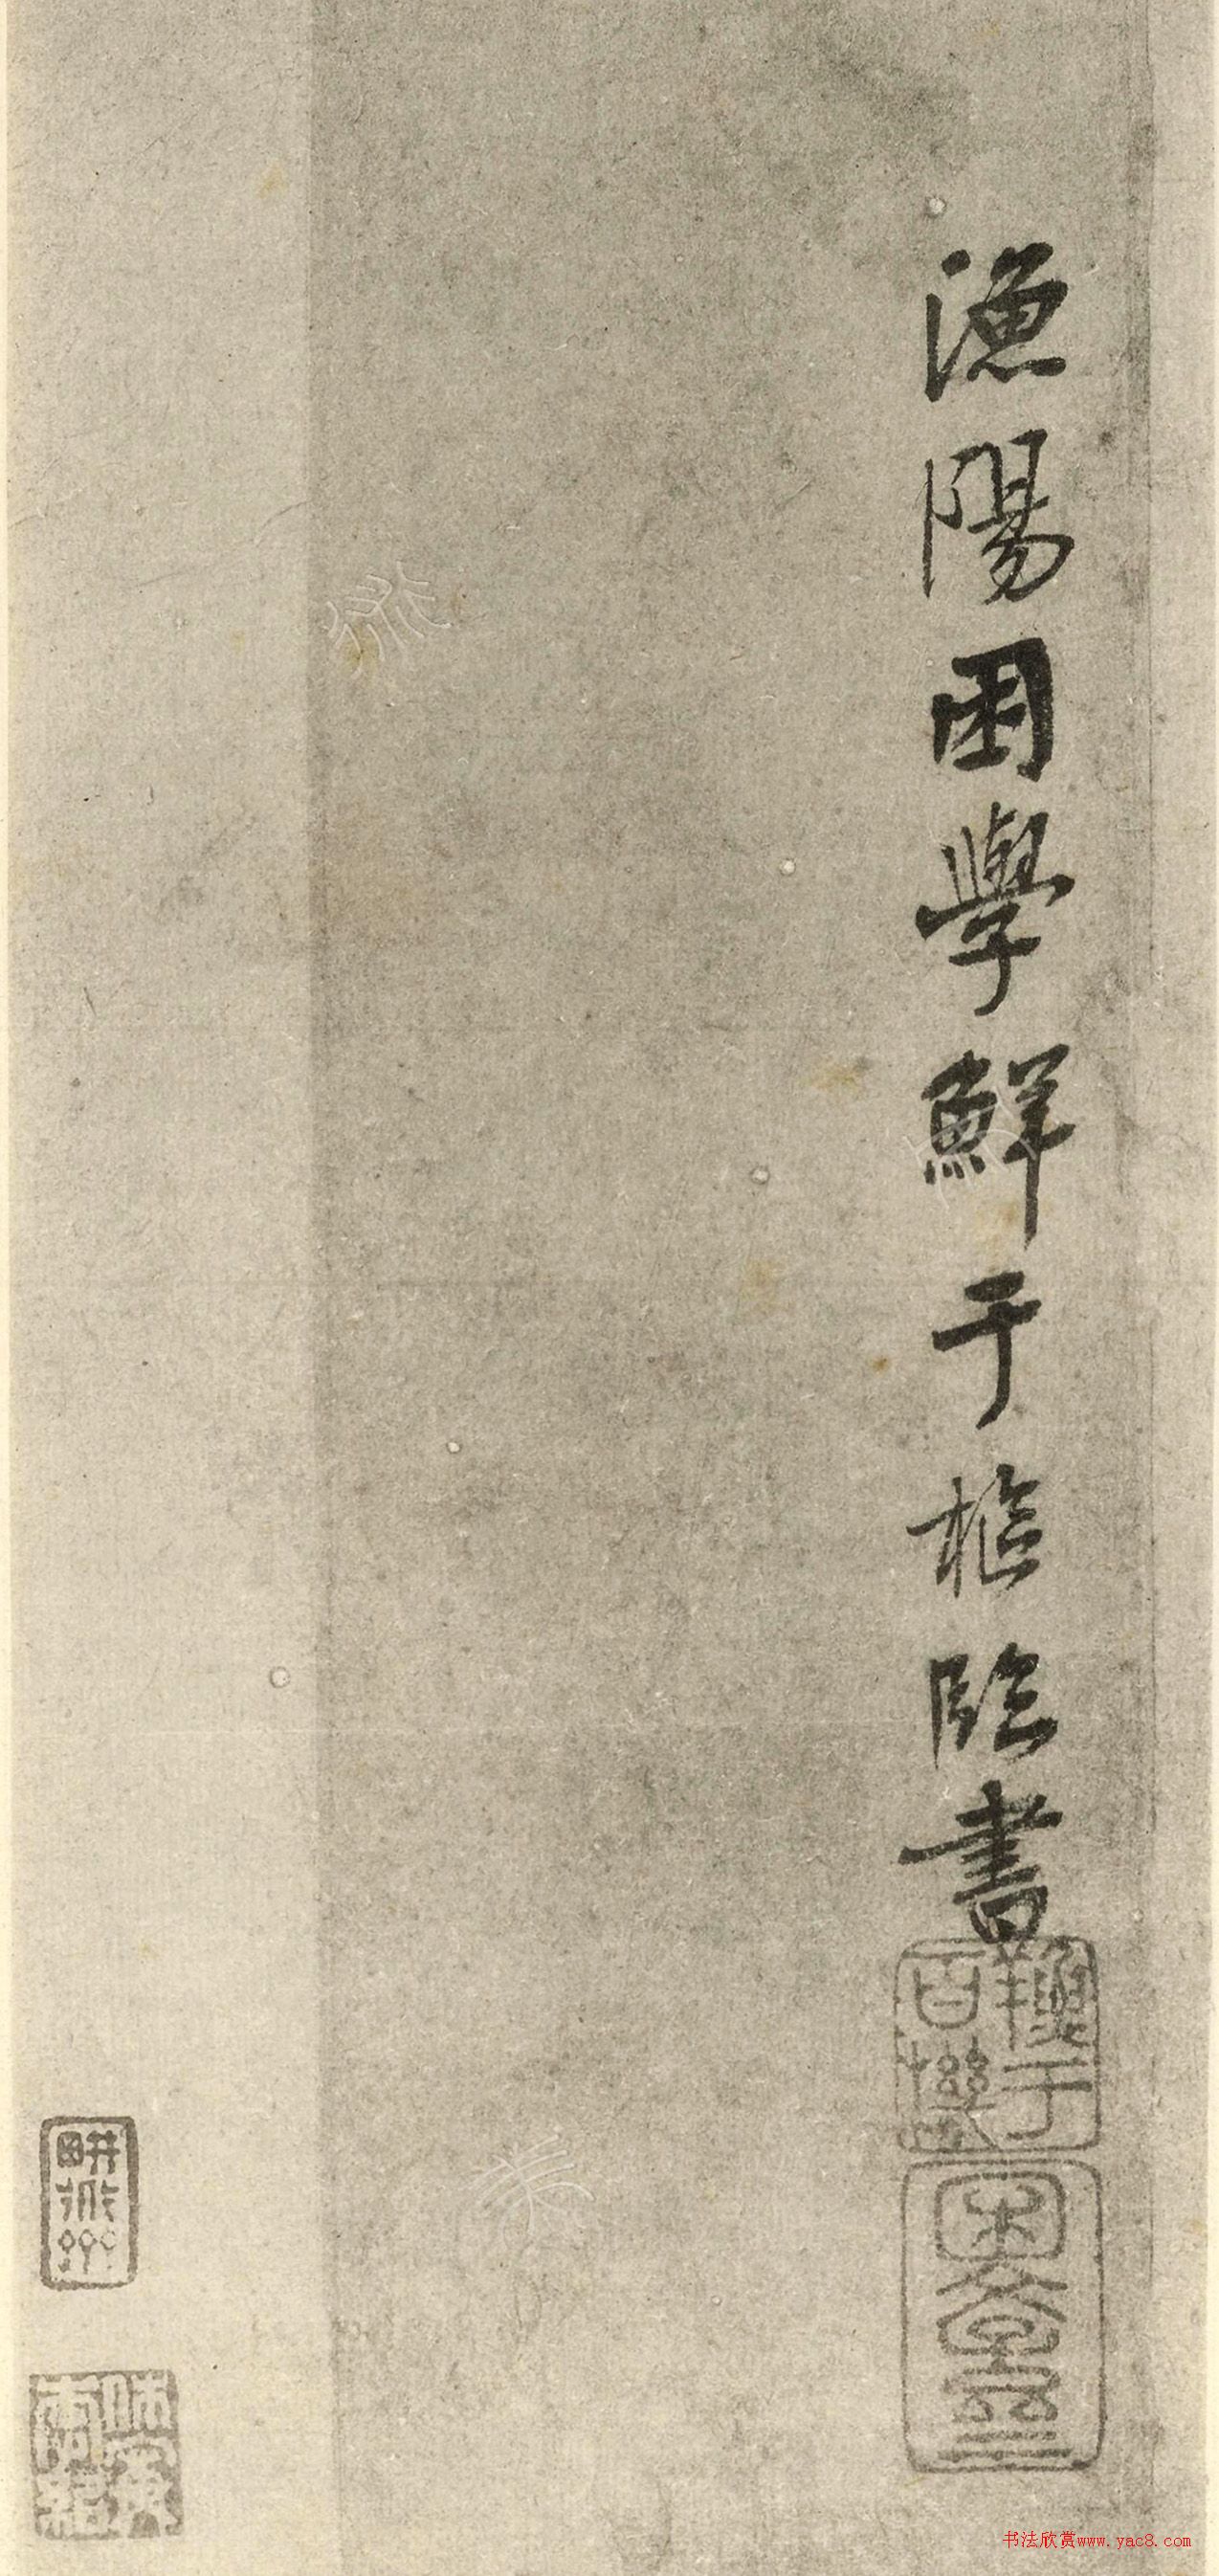 漁陽困學鮮于樞臨書
鮮于
困學齋
书法欣赏www.yac8.com